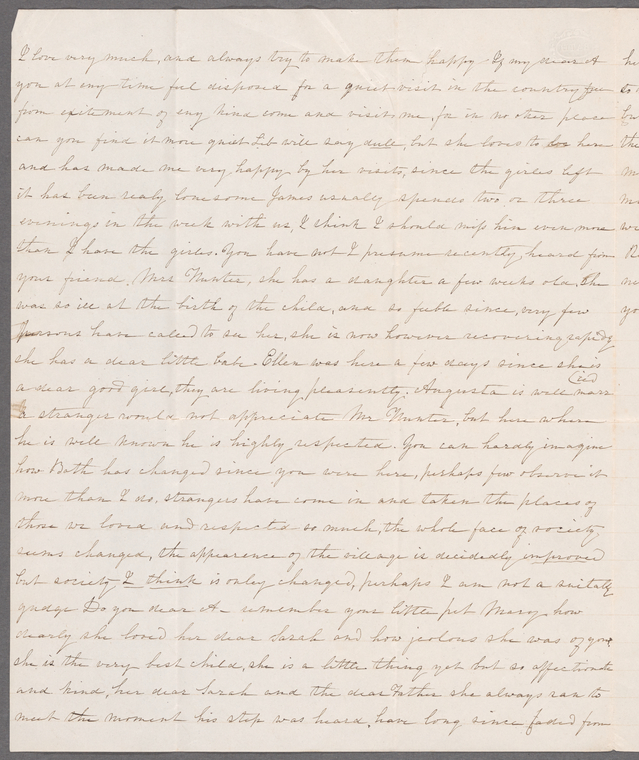 I love very much, and always try to make them happy If my dear A he
you at any time feel disposed for a quiet visit in the country free to
from exitement of any kind come and visit me, for in no other place
can you find it more quiet Lib will say dull, but she loves to be here the
and has made me very happy by her visits, since the girles left
it has been realy lonesome James usually spends two or three
evenings in the week with us, I think I should miss him even more
than I have the girles. You have not I presume recently heard from
your friend, Mrs Hunter, she has a daughter a few weeks old, She
was so ill at the birth of the child, and so feeble since, very few yo
Persons have called to see her, she is now however recovering rapidly
she has a dear little babe Ellen was here a few days since she is
a dear good girl, they are living pleasently, Angusta is well married
a stranger would not appreciate Mr Hunter, but here where
he is well known he is highly respected. You can hardly imagine
how Bath has changed since you were here, perhaps few observe it
more than I do, strangers have come in and taken the places of
those we loved and respected so much, the whole face of society
seems changed, the appearence of the village is decidedly improved
but society I think is only changed, perhaps I am not a suitable
gudge Do you dear A- remember your little pet Mary, how
dearly she loved her dear Sarah and how jealous she was of you
she is the very best child, she is a little thing yet but so affectionate
and kind, her dear Sarah and the dear Father she always ran to
meet the moment his step was heard, have long since faded from